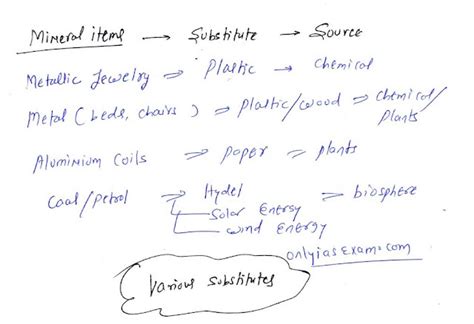 Mineral items → Substitute → Source
Metallic Jewelry ⇒ Plastic → Chemical
Metal (beds, chairs) ⇒ Plastic/wood ⇒ Chemical/
Plants
Aluminium Coils ⇒ Paper ⇒ plants
Coal/petrol ⇒ Hydel ⇒ biosphere
Solar Energy
wind Energy
onlyiasexam.com
Various substitutes